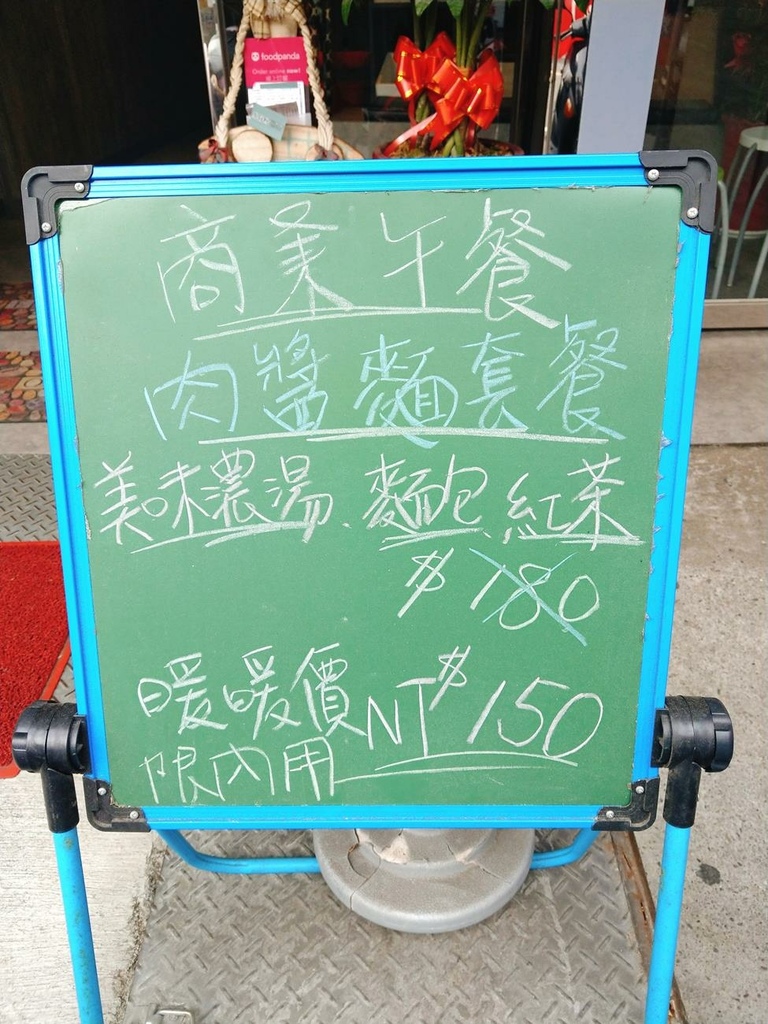 foodpanda
Order online now!
線上訂餐
商業午餐
肉醬麵套餐
美味濃湯、麵包、紅茶
$180
暖暖價NT$150
限內用